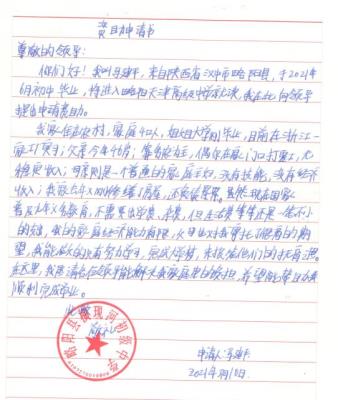 资助申请书
尊敬的领导：
你们好！我叫 建 ，来自陕西省汉中市略阳县，于2021年
6月初中毕业，将进入略阳天津高级中学就读，我在此向领导
提出申请资助。
我家住在农村，家庭4口人，姐姐大学刚毕业，目前在浙江一
家工厂实习；父亲今年49岁，靠务农为主，偶尔在家门口打零工，无
稳定收入；母亲则是一个普通的家庭主妇，没有技能，没有经济
收入；我家去年 修建了房屋，还 。虽然现在国家
普及九年义务教育，不需要 学费，但 生活费等等还是一笔不小
的 ，我的家庭经济能力有限，父母也对我寄托了很高的期
望，我能做的只有努力学习，完成学业，来报答他们的
在这里，我恳请各位领导能解决我家庭里的负担，希望能帮助我
顺利完成学业。
此致
敬礼
略阳县 现河初级中学
申请人：
2021年 月10日